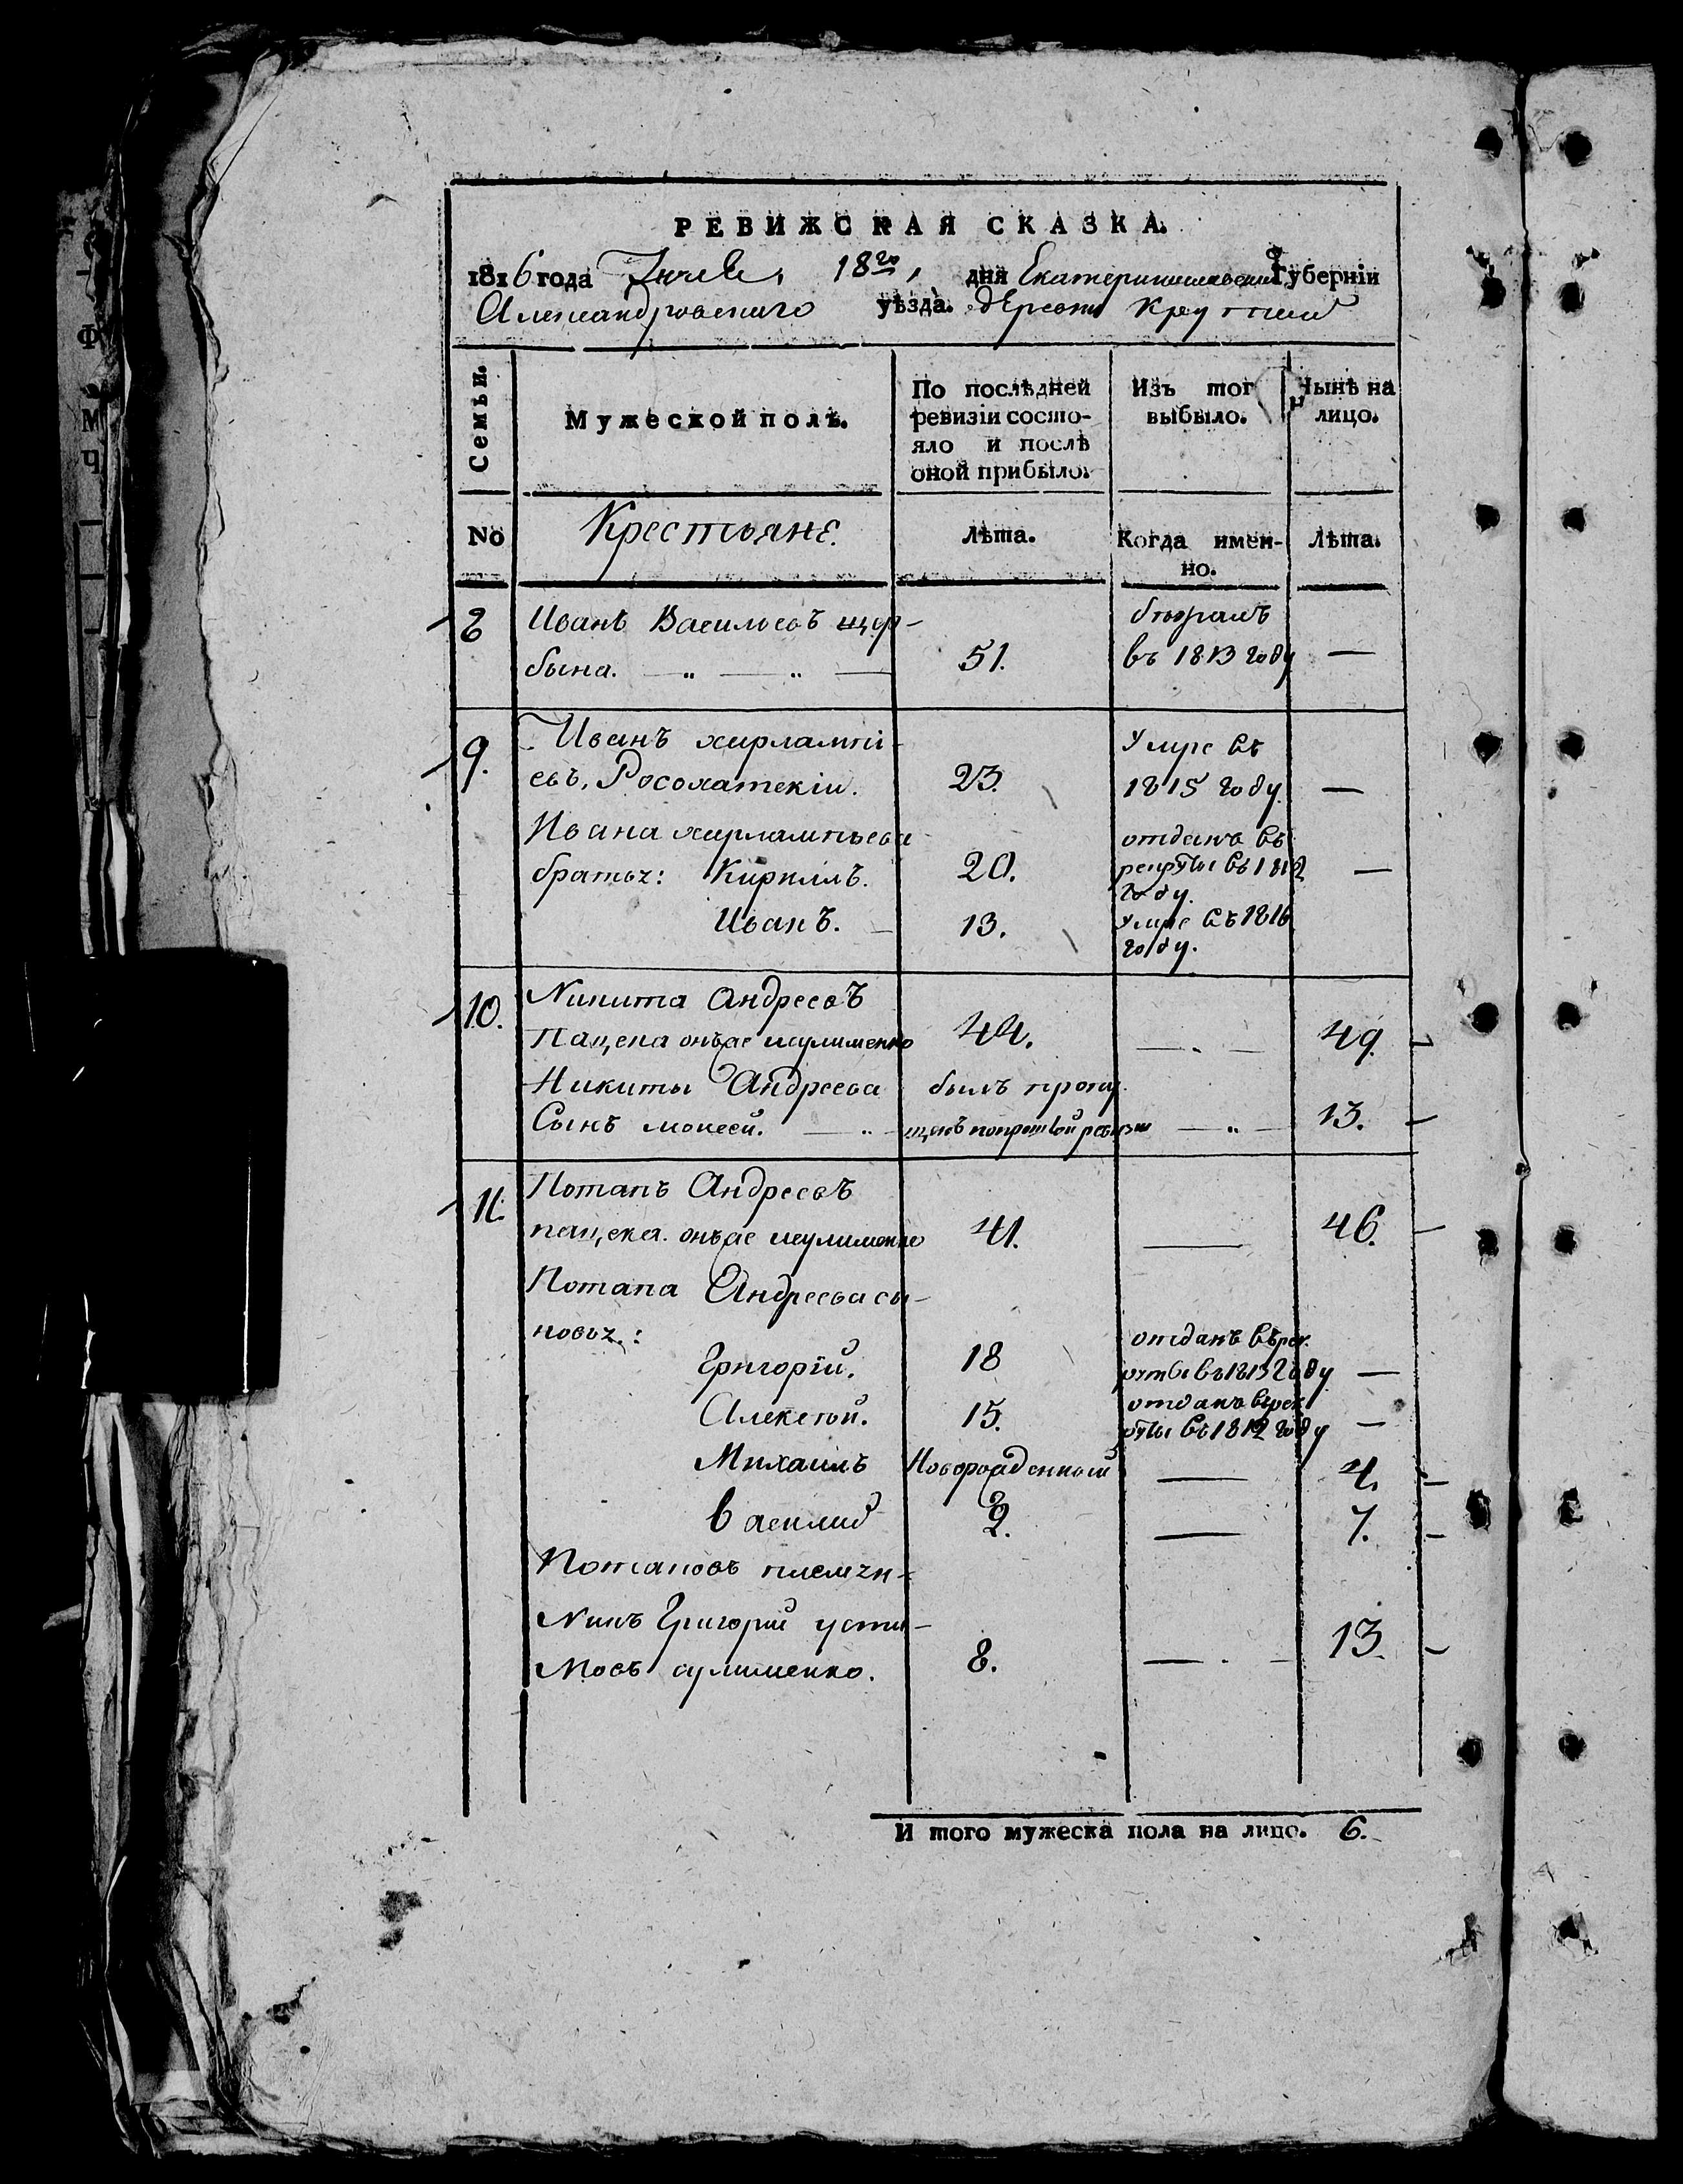 РЕВИЖСКАЯ СКАЗКА.
1816 года Июля 18го, дня Екатеринославской Губерніи
Александровскаго уѣзда. дEревни
Семьи.
Мужеской полъ.
По послѣдней ревизіи состояло и послѣ оной прибыло.
Изъ тог выбыло.
Нынѣ на лицо.
No
Крестьяне.
лѣта.
Когда именно.
Лѣта.
8
Иванъ Васильевъ щер-
бына.
51.
бѣжалъ
въ 1813 году —
9.
Иванъ харлампі-
евъ, Росохатскіи.
23.
Умре въ
1815 году. —
Ивана харлампьева
братьѧ: Кирилъ.
20.
отданъ въ
рекруты въ 1812
году. —
Иванъ.
13.
Умре въ 1816
году.
10.
Никита Андреевъ
Пацека онъже сулименко
44.
49.
Никиты Андреева
былъ пропу
Сынъ моисей.
щенъ по прошвой ревизіи
13.
11.
Потапъ Андреевъ
пацека. онъже сулименко
41.
46.
Потапа Андреева сы-
новьѧ:
Григорій.
18
отданъ въ рек.
руты въ 1813 году —
Алексѣй.
15.
отданъ въ рек
руты въ 1812 году —
Михаилъ
Новорожденный
4.
василий
2.
7.
Потаповъ племѧн-
Никъ Григорий усти-
Мовъ сулименко.
8.
13.
И того мужеска пола на лицо. 6.